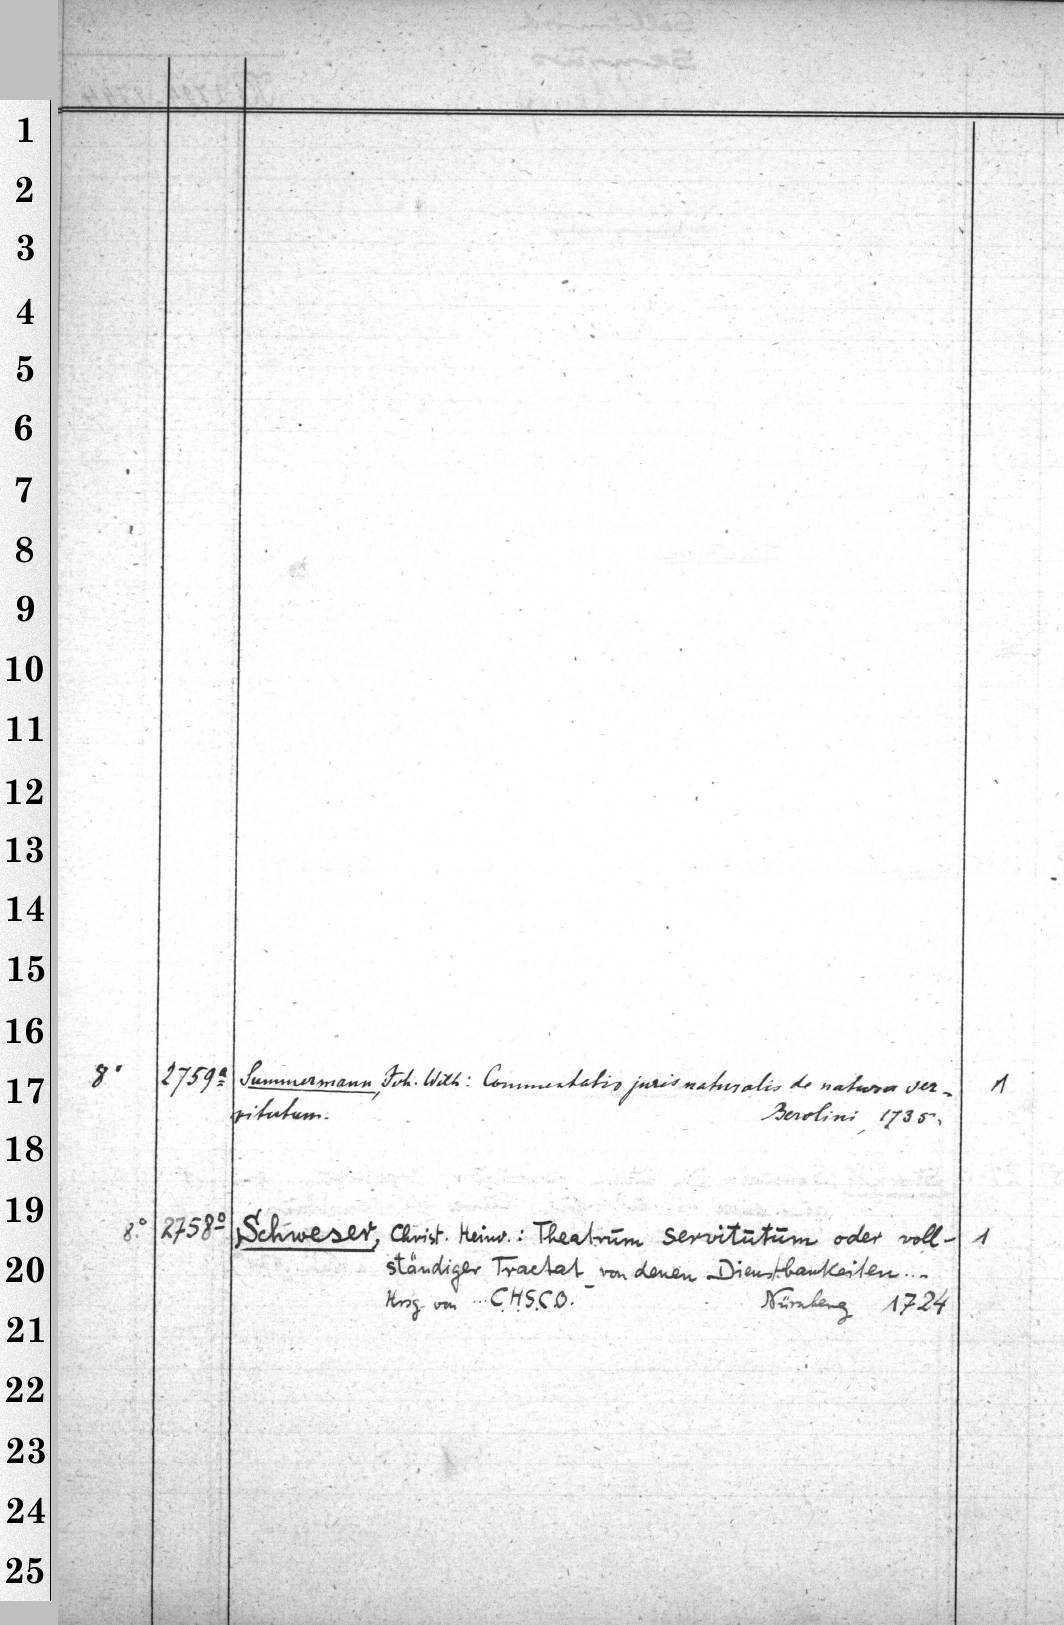 1
2
3
4
5
6
7
8
9
10
11
12
13
14
15
16
17
18
19
20
21
22
23
24
25
8° 2759a Summermann, Joh. Wilh: Commentatio juris naturalis de natura ser- 1
vitutum. Berolini, 1735.
8° 2758° Schweser, Christ. Heinr.: Theatrum servitutum oder voll- 1
ständiger Tractat von denen Dienstbarkeiten...
Hrsg von ... C.H.S.C.O. Nürnberg 1724